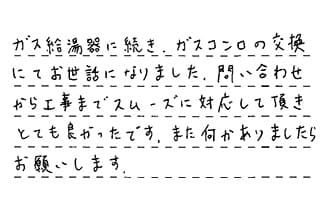 ガス給湯器に続き、ガスコンロの交換
にてお世話になりました。問い合わせ
から工事までスムーズに対応して頂き
とても良かったです。また何かありましたら
お願いします。